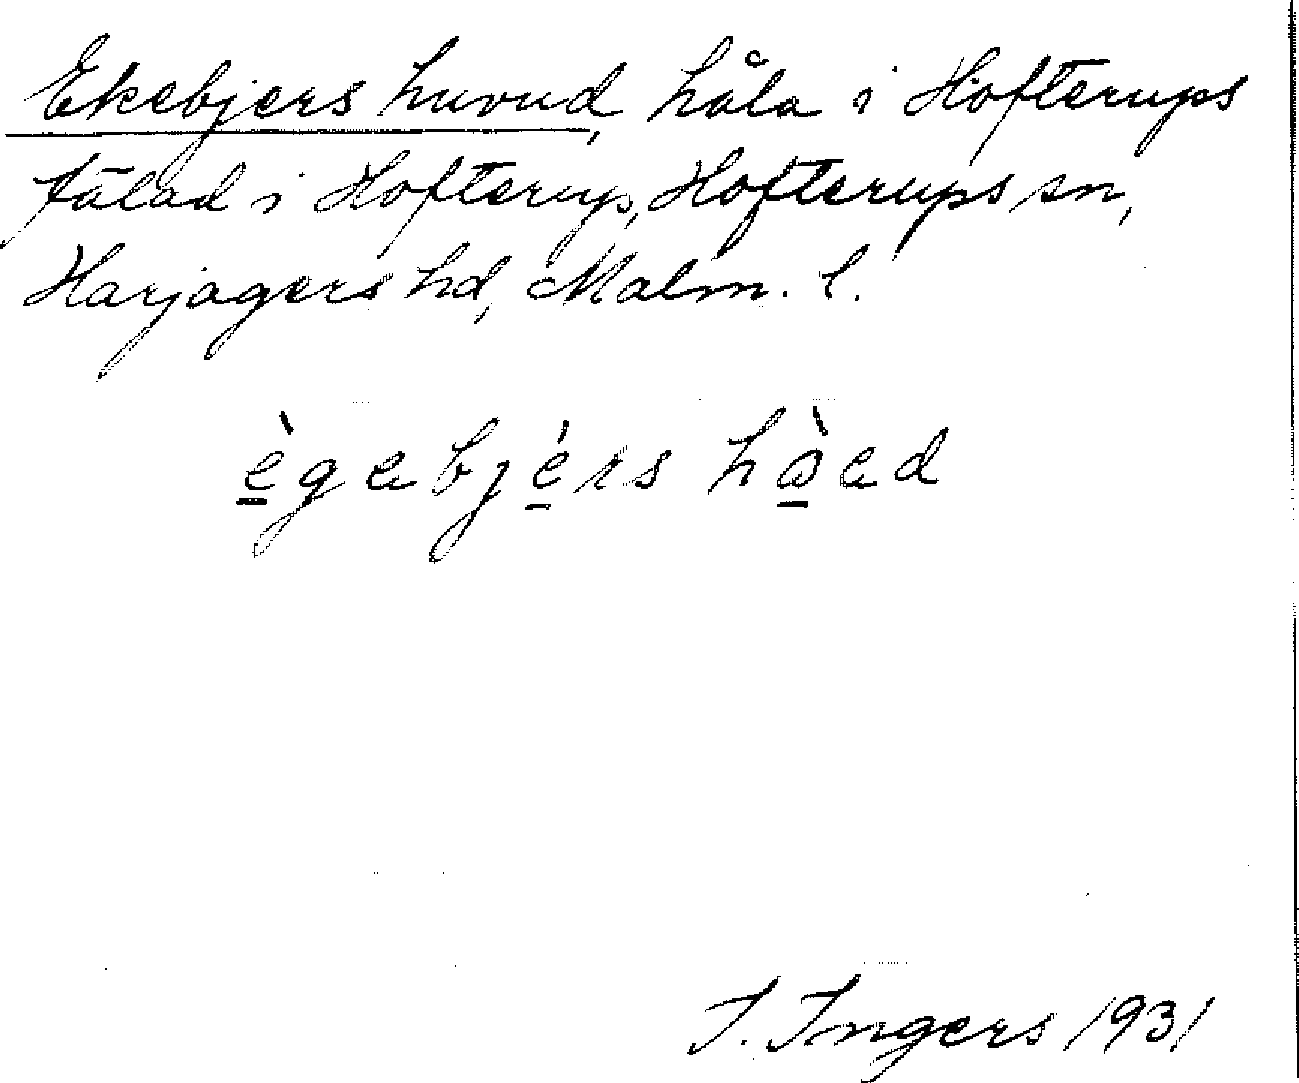 Ekebjers huvud, håla i Hofterups
fälad i Hofterup, Hofterups sn,
Harjagers hd, Malm. l.
ègebjérs hòed
I. Ingers 1931